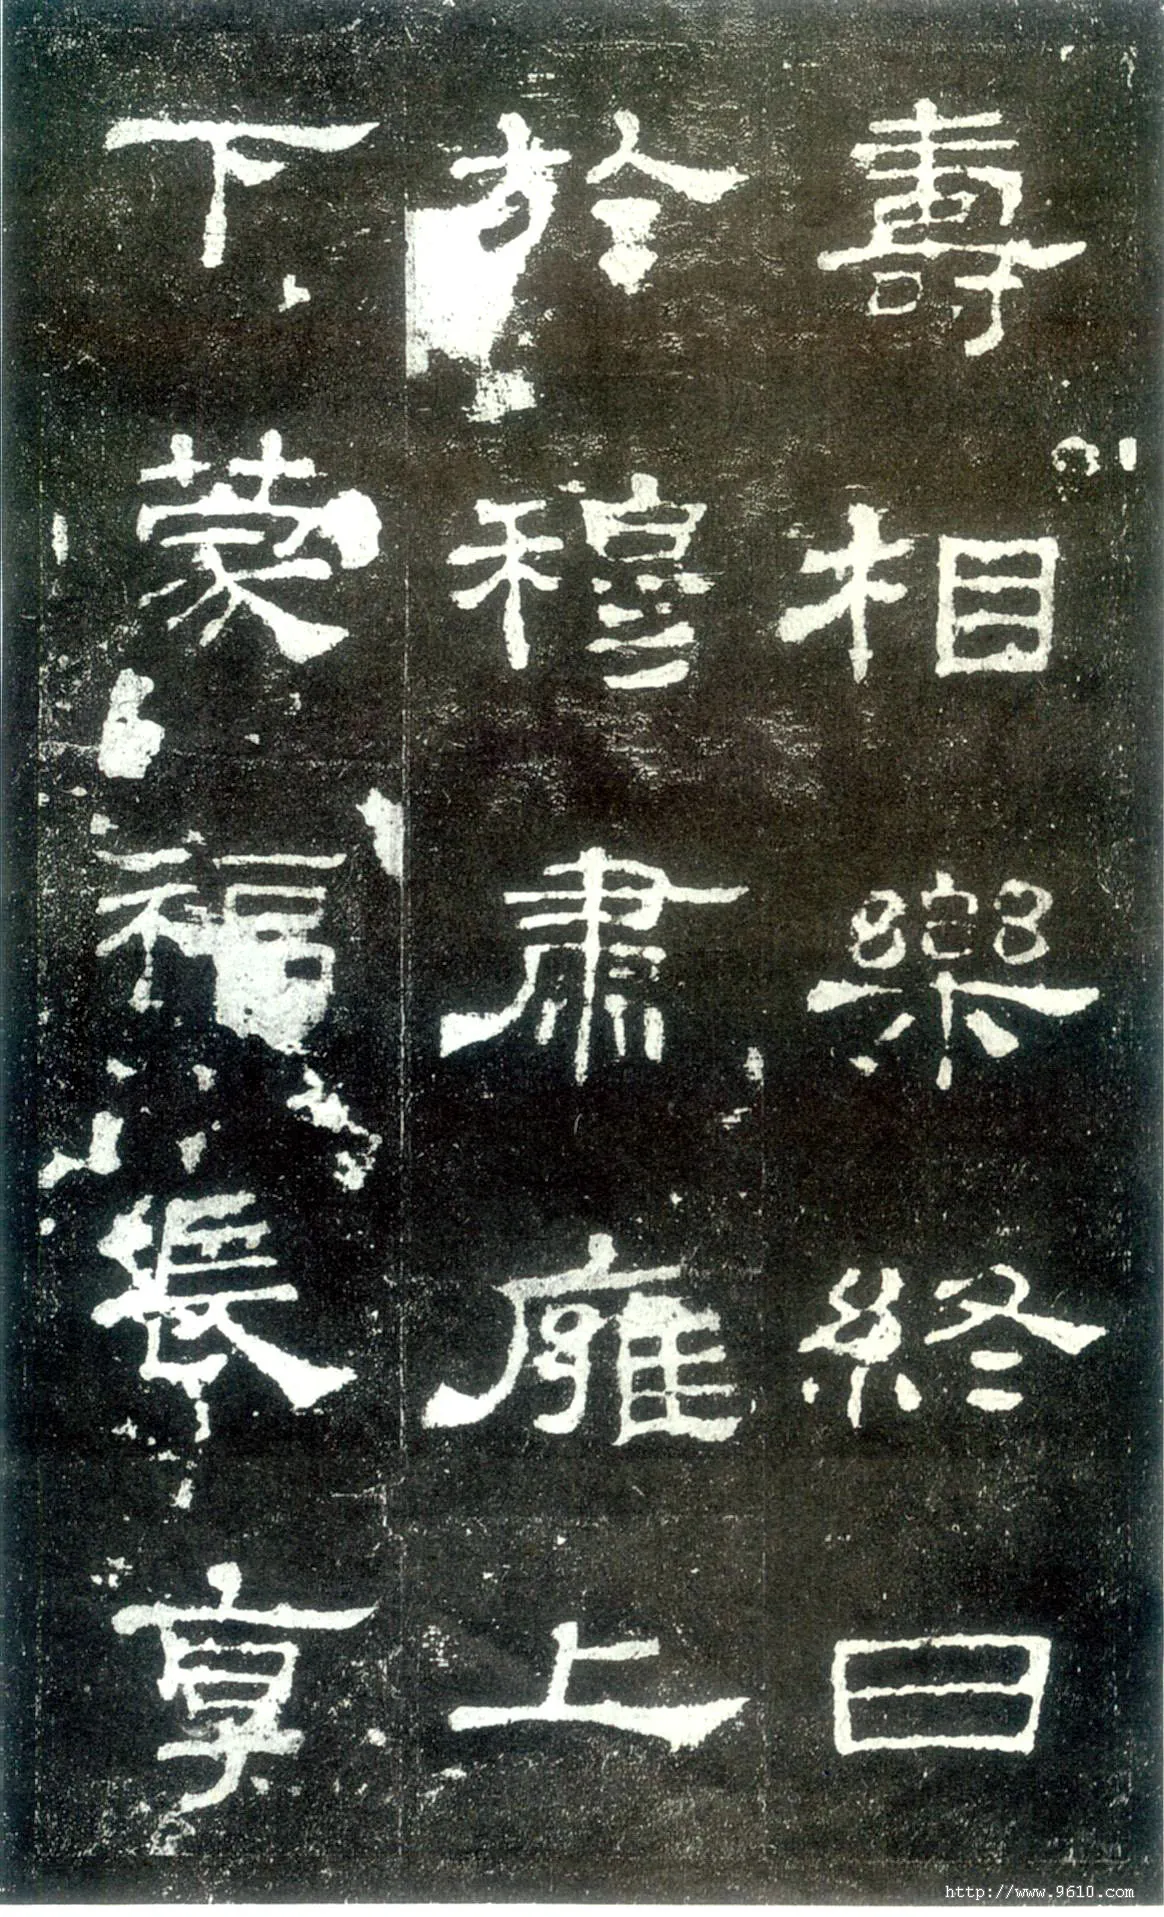 壽相樂終日
於穆肅廱上
下蒙福長享
http://www.9610.com